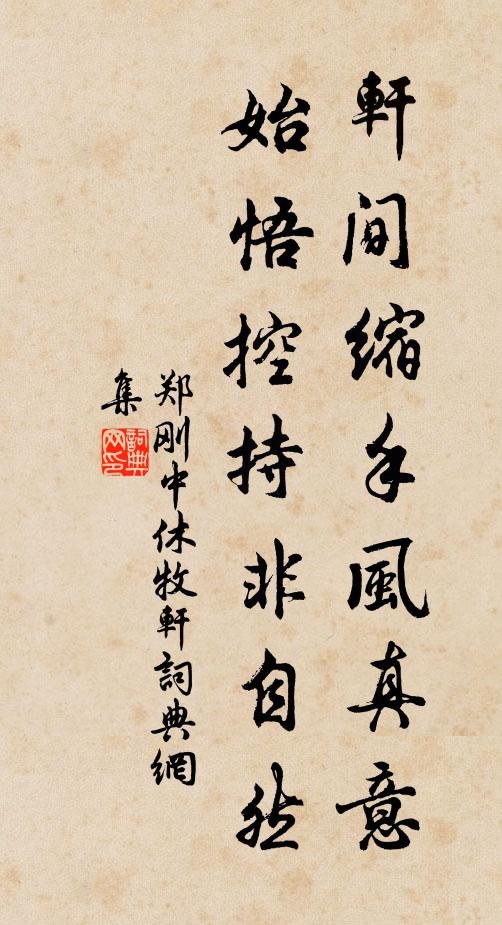 軒間縮手風真意
始悟控持非自然
郑刚中休牧軒詞典網
集
詞典網印